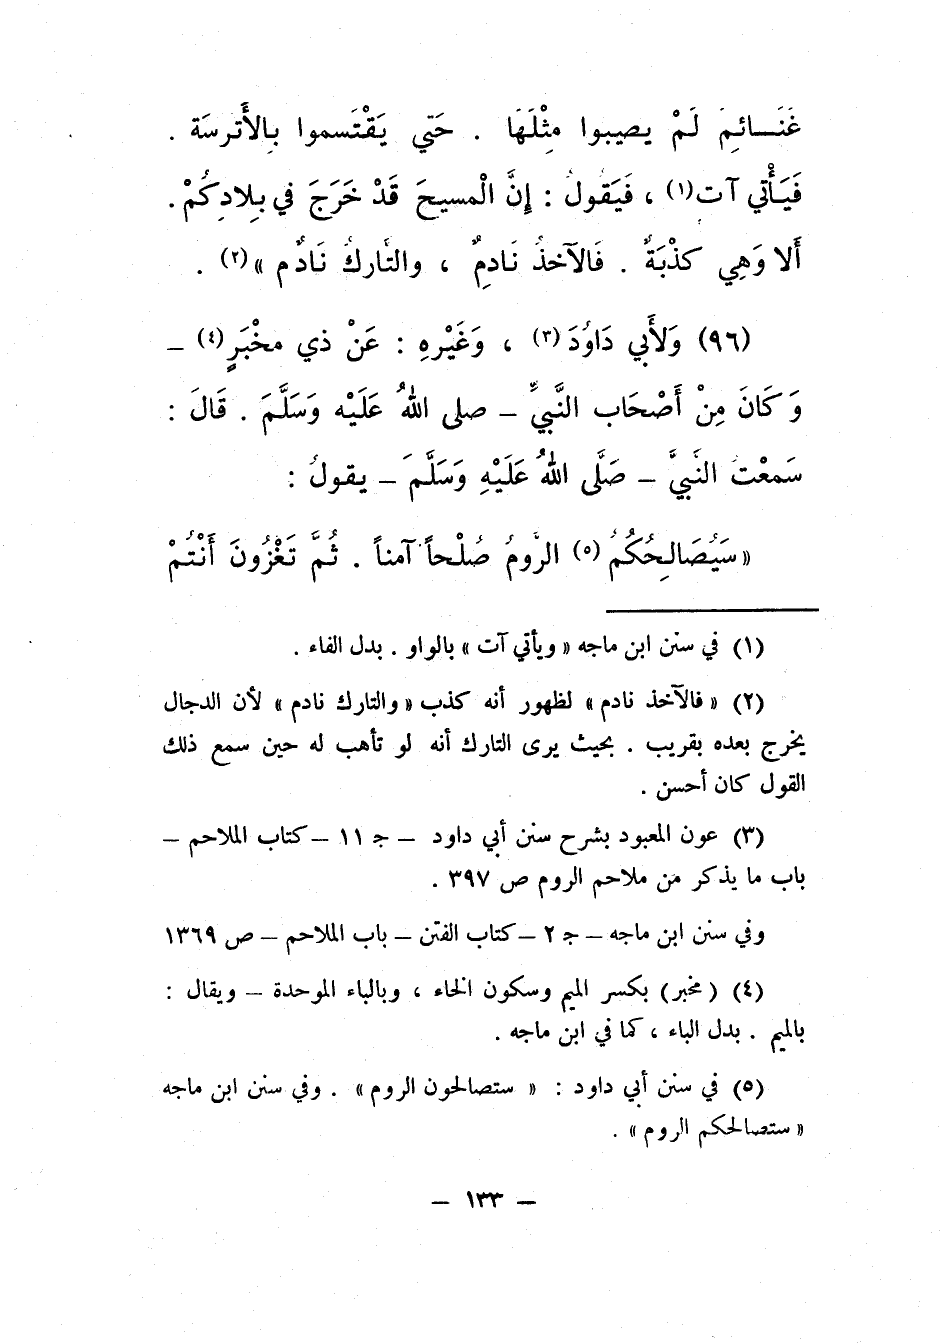 غَنَـــائِمَ لَمْ يصيبوا مِثْلَهَا . حَتّي يَقْتَسموا بِالأَترسَة .
فَيَأْتي آت(١) ، فَيَقُولُ : إِنَّ الْمسيحَ قَدْ خَرَجَ في بِلادِكُمْ .
أَلا وَهِي كَذْبَةٌ . فَالآخذُ نَادِمٌ ، والتَّارِكُ نَادٌم »(٢) .
(٩٦) وَلأَبي دَاوُدَ(٣) ، وَغَيْرِهِ : عَنْ ذي مخْبَرٍ(٤) –
وَكَانَ مِنْ أَصْحَاب النَّبيِّ – صلى اللهُ عَلَيْه وَسَلَّمَ . قَالَ :
سَمعْتُ النَّبيَّ – صَلَّى اللهُ عَلَيْهِ وَسَلَّمَ – يقولُ :
« سَيُصَالِحُكُمُ (٥) الرُّومُ صُلْحاً آمناً . ثُمَّ تَغْزُونَ أَنْتُمْ
(١) في سنن ابن ماجه « ويأتي آت » بالواو . بدل الفاء .
(٢) « فالآخذ نادم » لظهور أنه كذب « والتارك نادم » لأن الدجال
يخرج بعده بقريب . بحيث يرى التارك أنه لو تأهب له حين سمع ذلك
القول كان أحسن .
(٣) عون المعبود بشرح سنن أبي داود – جـ ١١ – كتاب الملاحم –
باب ما يذكر من ملاحم الروم ص ٣٩٧ .
وفي سنن ابن ماجه – جـ ٢ – كتاب الفتن – باب الملاحم – ص ١٣٦٩
(٤) ( مخبر ) بكسر الميم وسكون الخاء ، وبالباء الموحدة – ويقال :
بالميم . بدل الباء ، كما في ابن ماجه .
(٥) في سنن أبي داود : « ستصالحون الروم » . وفي سنن ابن ماجه
« ستصالحكم الروم » .
– ١٣٣ –